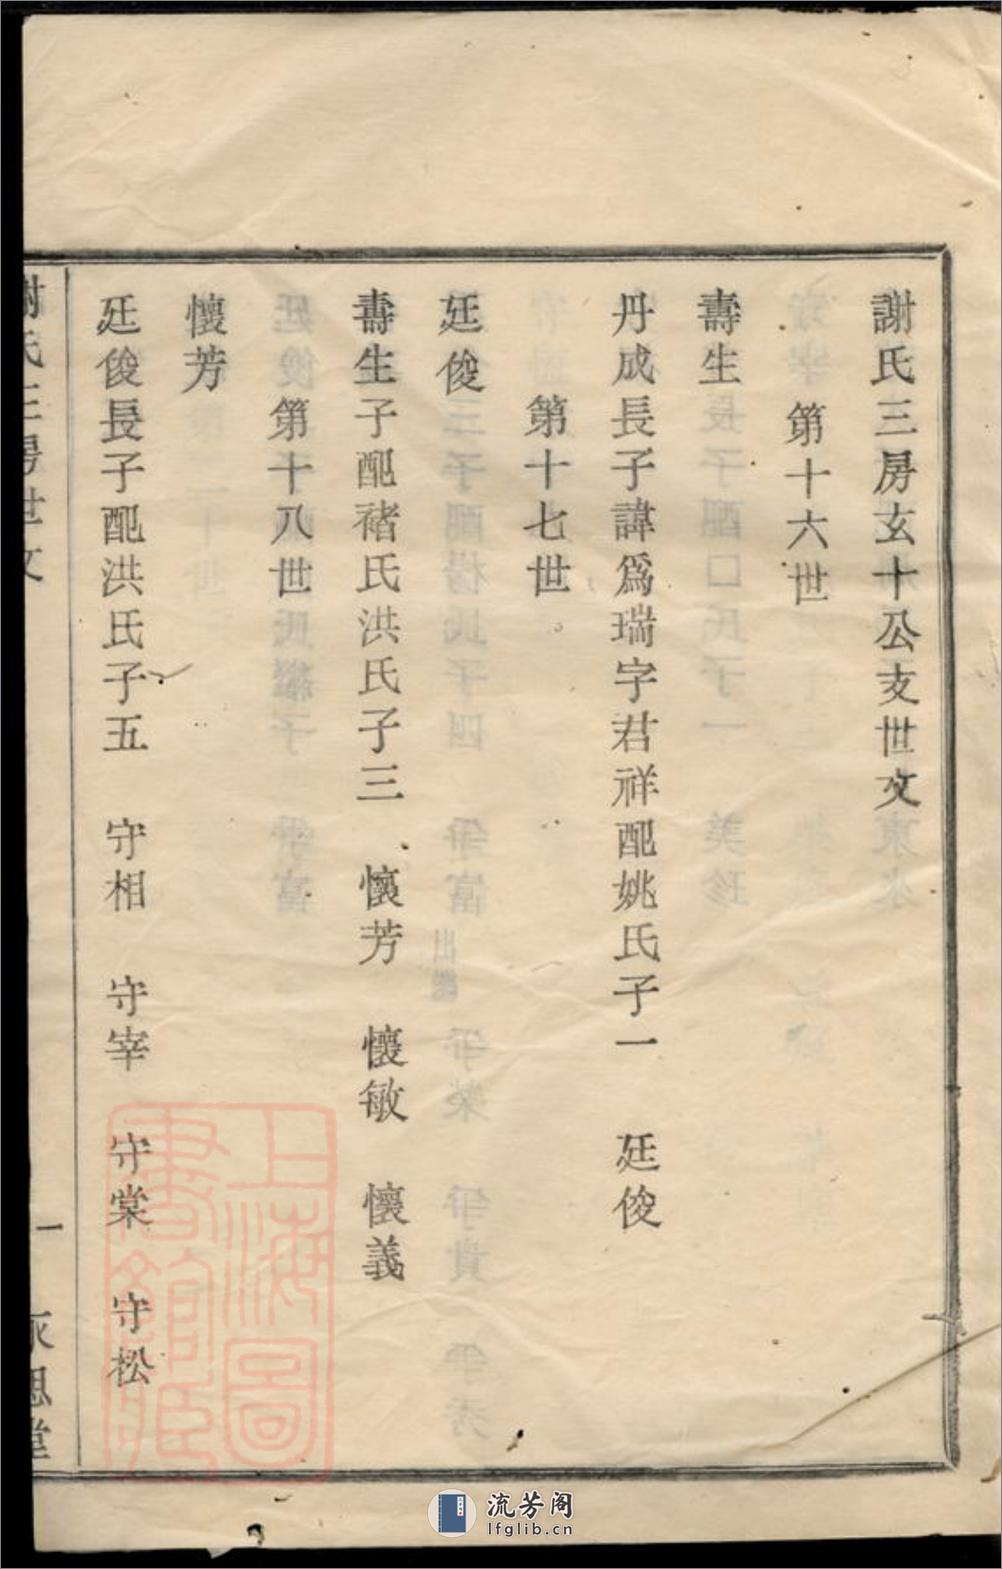 謝氏三房玄十公支世文
第十六世
壽生
丹成長子諱爲瑞字君祥配姚氏子一　廷俊
第十七世
廷俊
壽生子配褚氏洪氏子三　懷芳　懷敏　懷義
第十八世
懷芳
廷俊長子配洪氏子五　守相　守宰　守棠　守松
謝氏三房世文
一
永思堂
上海圖書館藏
流芳阁
lfglib.cn